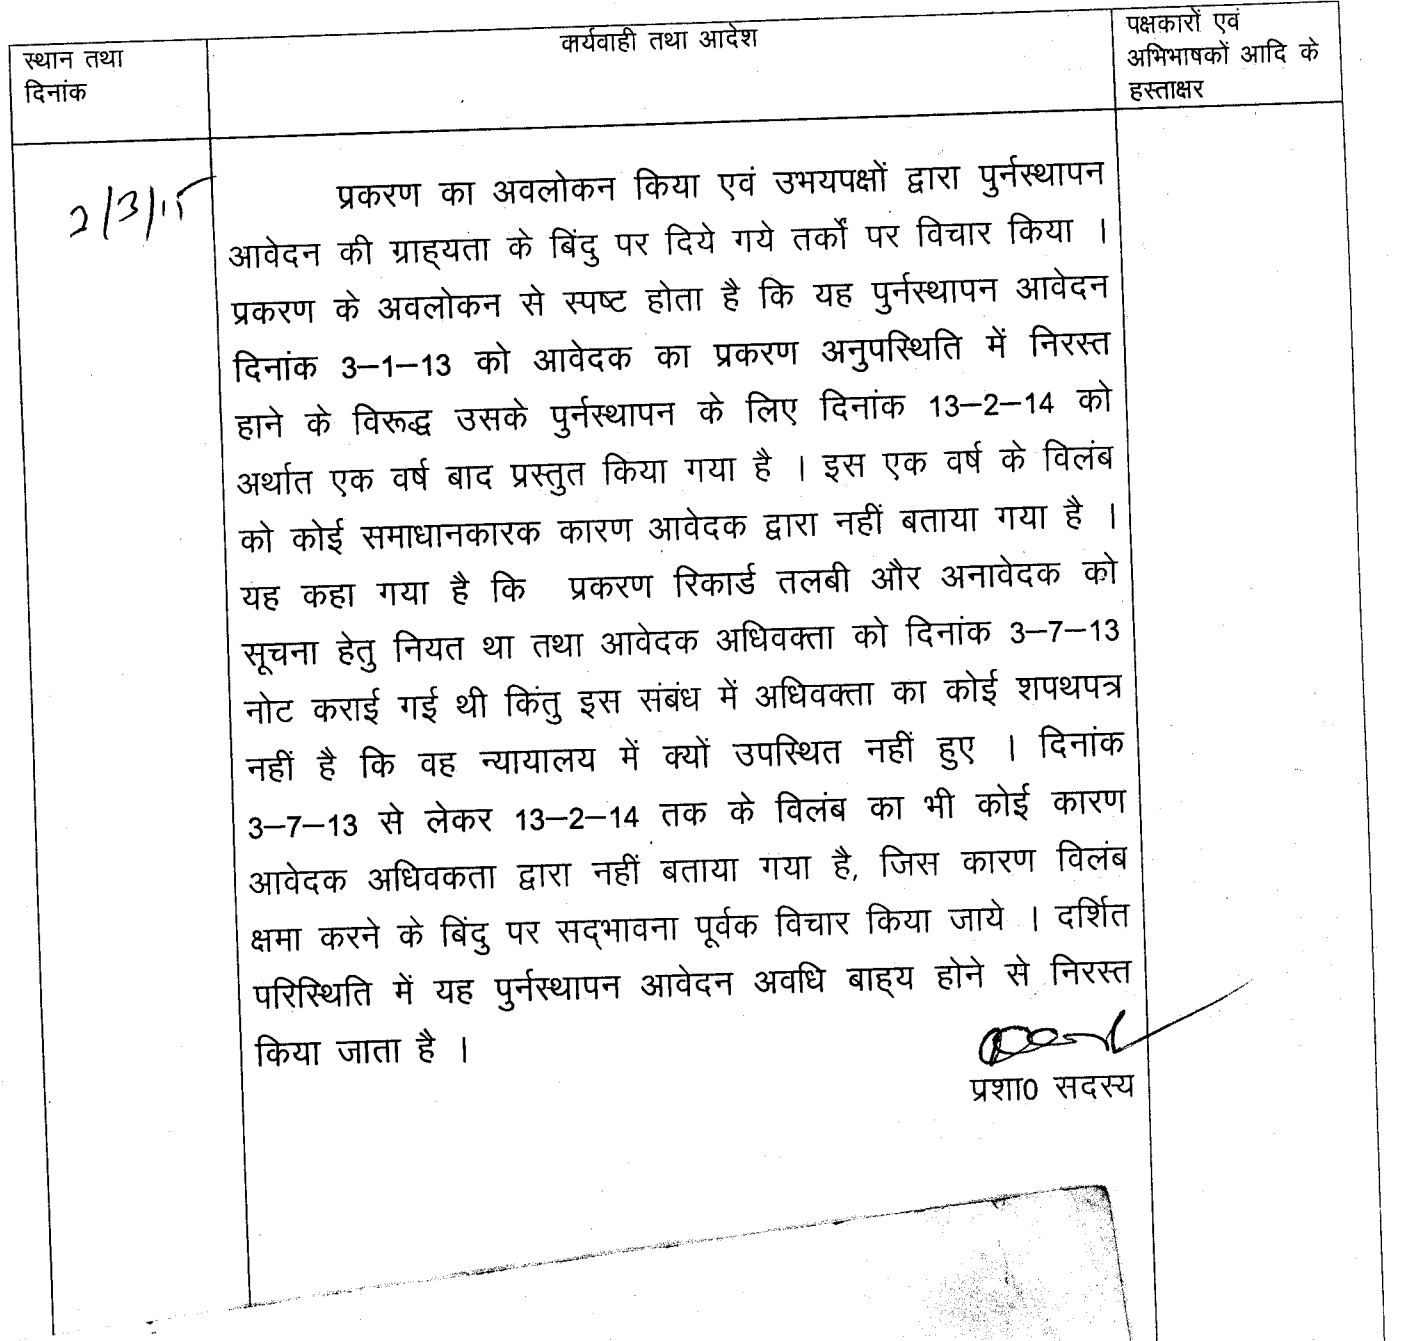 स्थान तथा
दिनांक
कार्यवाही तथा आदेश
पक्षकारों एवं
अभिभाषकों आदि के
हस्ताक्षर
2/3/15
प्रकरण का अवलोकन किया एवं उभयपक्षों द्वारा पुर्नस्थापन
आवेदन की ग्राह्यता के बिंदु पर दिये गये तर्कों पर विचार किया ।
प्रकरण के अवलोकन से स्पष्ट होता है कि यह पुर्नस्थापन आवेदन
दिनांक 3–1–13 को आवेदक का प्रकरण अनुपस्थिति में निरस्त
हाने के विरूद्ध उसके पुर्नस्थापन के लिए दिनांक 13–2–14 को
अर्थात एक वर्ष बाद प्रस्तुत किया गया है । इस एक वर्ष के विलंब
को कोई समाधानकारक कारण आवेदक द्वारा नहीं बताया गया है ।
यह कहा गया है कि प्रकरण रिकार्ड तलबी और अनावेदक को
सूचना हेतु नियत था तथा आवेदक अधिवक्ता को दिनांक 3–7–13
नोट कराई गई थी किंतु इस संबंध में अधिवक्ता का कोई शपथपत्र
नहीं है कि वह न्यायालय में क्यों उपस्थित नहीं हुए । दिनांक
3–7–13 से लेकर 13–2–14 तक के विलंब का भी कोई कारण
आवेदक अधिवकता द्वारा नहीं बताया गया है, जिस कारण विलंब
क्षमा करने के बिंदु पर सद्भावना पूर्वक विचार किया जाये । दर्शित
परिस्थिति में यह पुर्नस्थापन आवेदन अवधि बाह्य होने से निरस्त
किया जाता है ।
प्रशा0 सदस्य